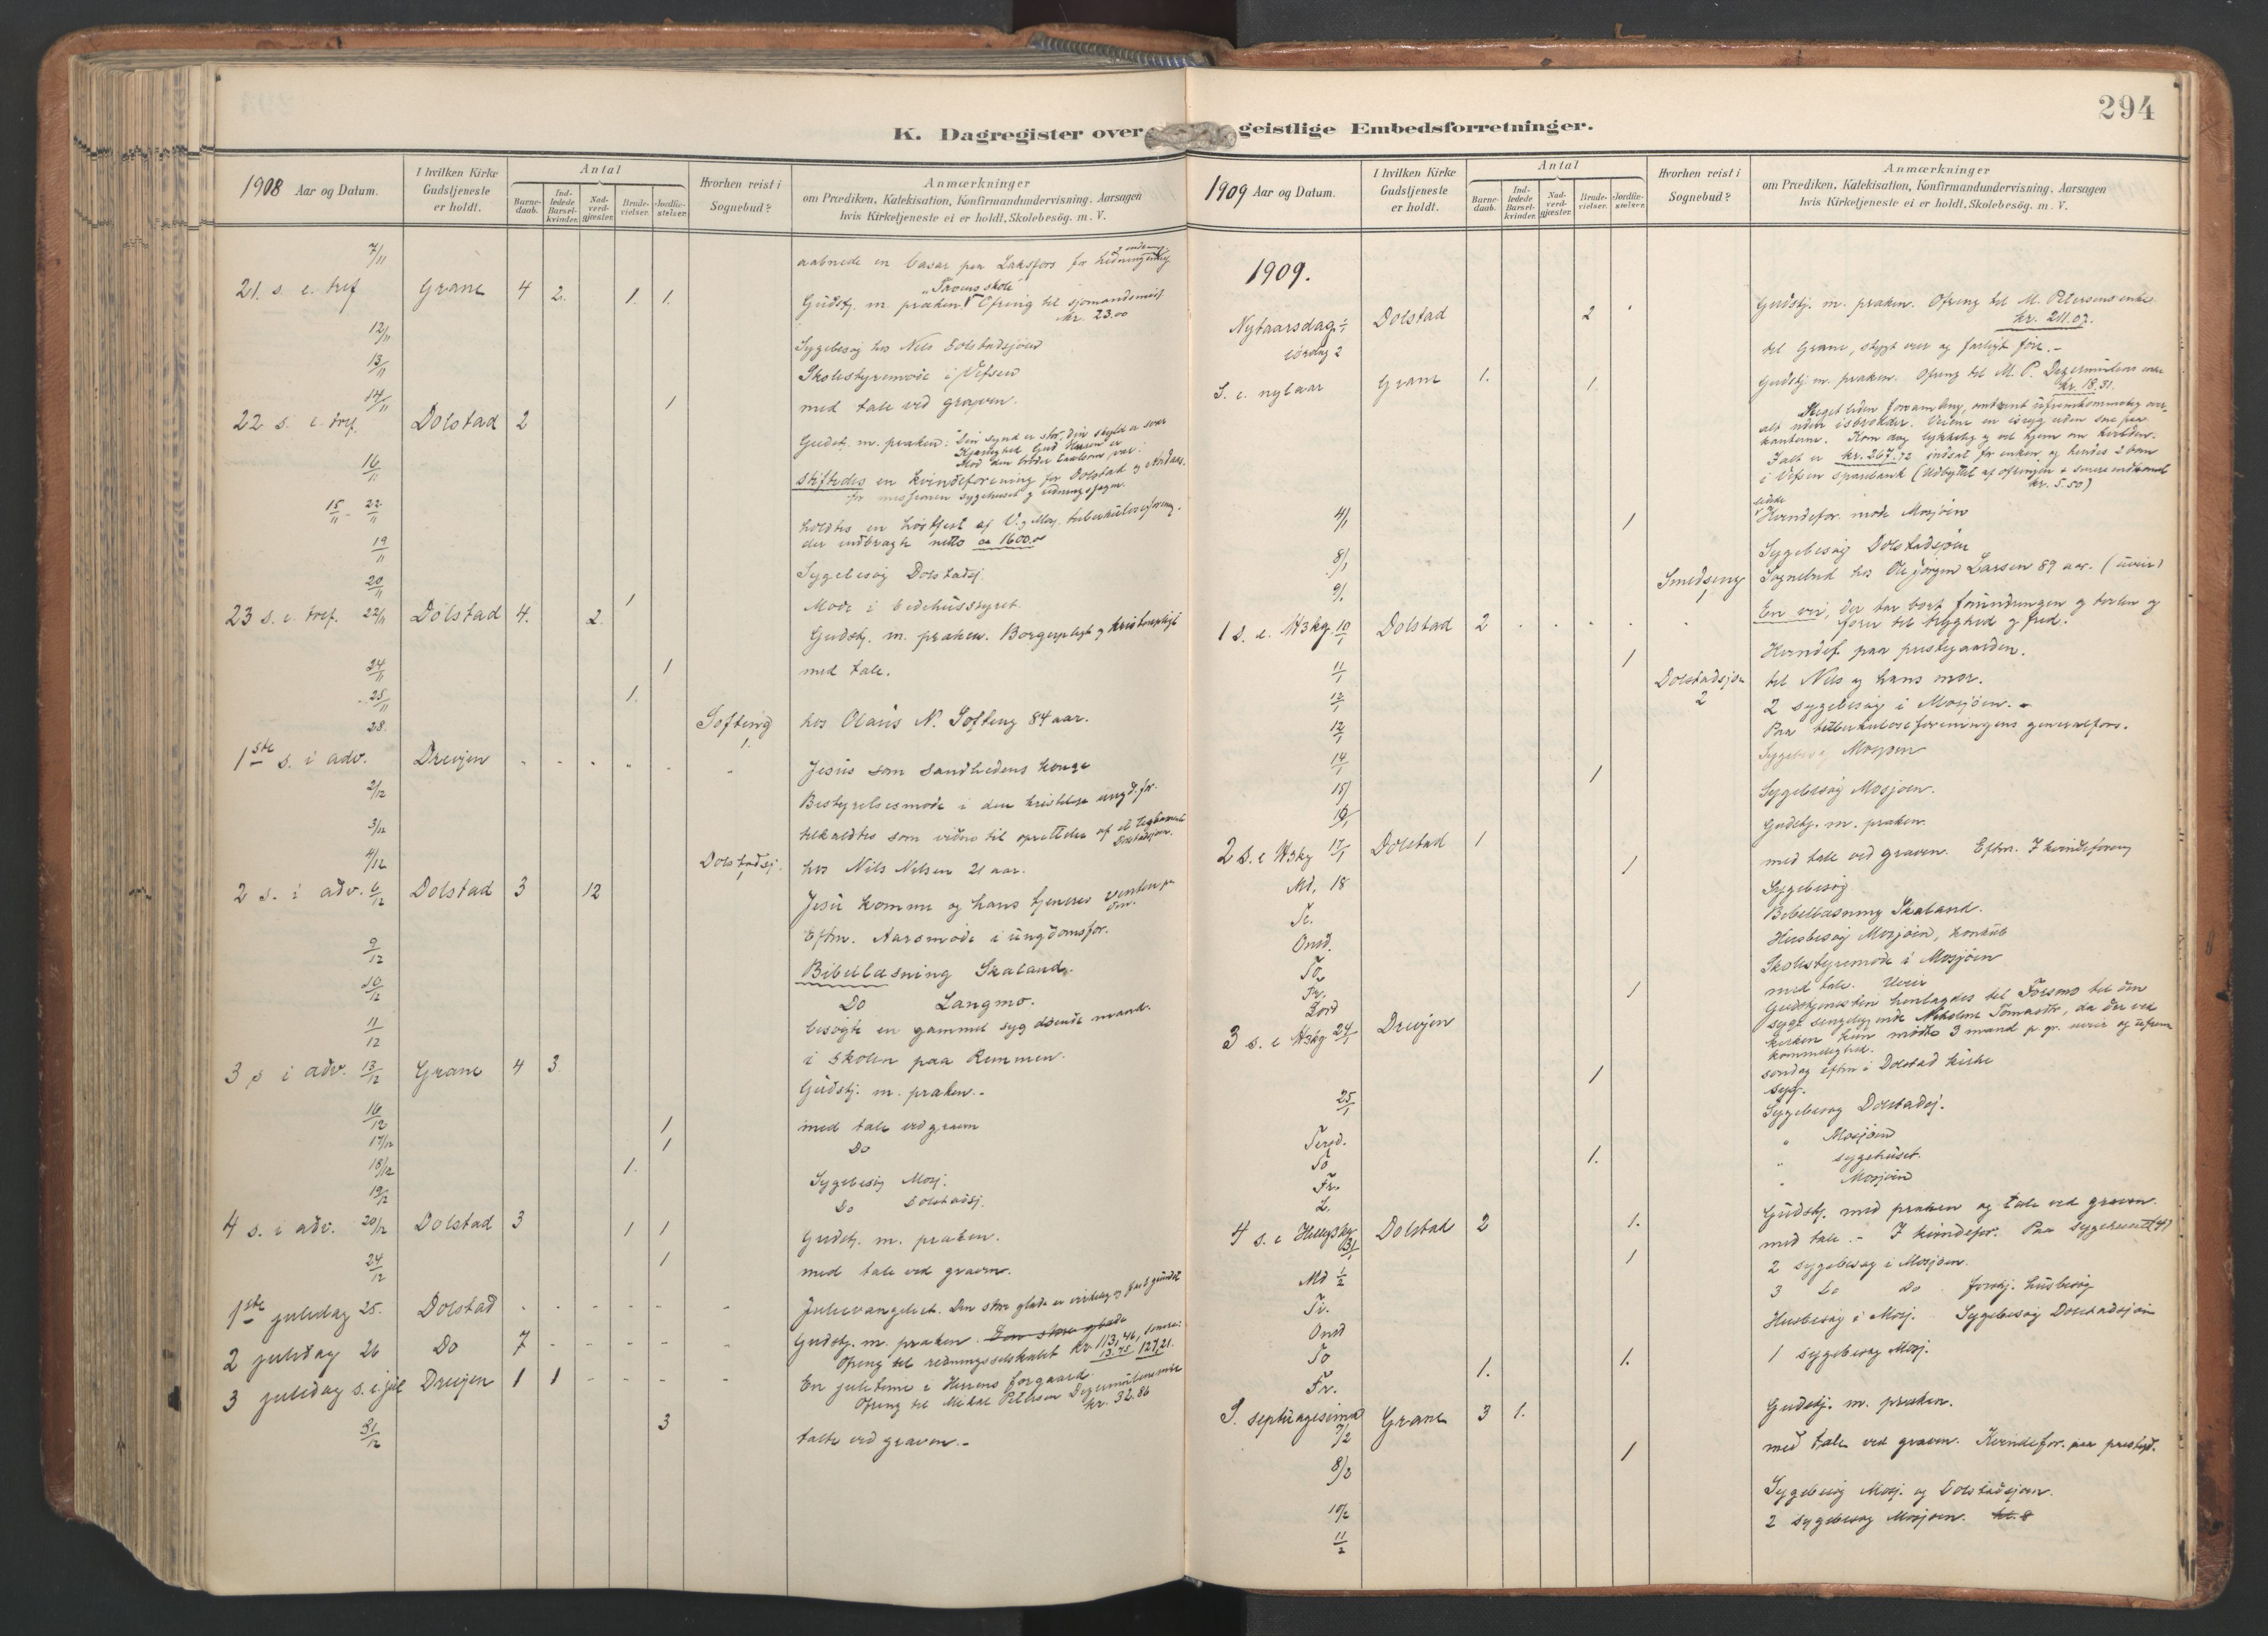 294
K. Dagregister over geistlige Embedsforretninger.
1908 Aar og Datum.
I hvilken Kirke Gudstjeneste er holdt.
Antal
Barnedaab.
Indledede Barselkvinder.
Nadverdgjæster.
Brudevielser.
Jordfæstelser.
Hvorhen reist i Sognebud?
Anmærkninger
om Prædiken, Katekisation, Konfirmandundervisning, Aarsagen
hvis Kirketjeneste ei er holdt, Skolebesög. m. V.
7/11 aabnede en basar paa Laksfors for
21. s. e. tref Grane 4 2. 1. 1. Gudstj. m. præken. Ofring til sjomandsmis. kr. 23.00
12/11 Sygebesøg hos Nils Dolstadsjøen
13/11 Skolestyremøde i Vefsen
14/11 1 med tale ved graven.
22 s. e. tref. Dolstad 2 Gudstj. m. præken: Din synd er stor, din skyld er svær
16/11 stiftedes en kvindeforening for Dolstad og
for missionen sygehuset og
15/11 - 22/11 holdtes en høstfest af V. og Mosj. tuberkuloseforening.
der indbragte netto ca 1600.00
19/11 Sygebesøg Dolstadsj.
20/11 1 Møde i bedehusstyret.
23 s. e. tref. 22/11 Dolstad 4. 2. Gudstj. m. præken. Borgerpligt og kristenpligt
24/11 1 med tale.
25/11 1.
28. Softing 1. hos Olaus N. Softing 84 aar.
1ste s. i adv. Drevjen Jesus som sandhedens konge
2/12 Bestyrelsesmøde i den kristelige ungd.for.
3/12 tilkaldtes som vidne til oprettelse af et
4/12 Dolstadsj. 1 hos Nils Nilsen 21 aar.
2 s. i adv. 6/12 Dolstad 3 12 Jesu komme og hans tjeneres venten paa
Eftm. Aarsmøde i ungdomsfor.
9/12 Bibellæsning Skaland.
10/12 Do Langmo.
11/12 besøgte en gammel syg døende mand.
i skolen paa Remmen.
3 s i adv. 13/12 Grane 4 3. Gudstj. m. præken.-
16/12 1 med tale ved graven
17/12 1 Do
18/12 1. Sygebesøg Mosj.
19/12 Do Dolstadsj.
4 s. i adv. 20/12 Dolstad 3 1 1 Gudstj. m. præken.
24/12 1 med tale ved graven.
1ste juledag 25. Dolstad Juleevangeliet. Den store glæde er virkelig og
2 juledag 26 Do 7 Gudstj. m. præken. Den store glæde
Ofring til redningsselskabet kr. 113,46, senere: 13.75 127,21.
3 juledag s. e. jul Drevjen 1 1 En juletime i Herrens forgaard.
Ofring til Mikal Petersen enke kr. 32.86
31/12 3 talte ved graven.-
1909 Aar og Datum.
I hvilken Kirke Gudstjeneste er holdt.
Antal
Barnedaab.
Indledede Barselkvinder.
Nadverdgjæster.
Brudevielser.
Jordfæstelser.
Hvorhen reist i Sognebud?
Anmærkninger
om Prædiken, Katekisation, Konfirmandundervisning, Aarsagen
hvis Kirketjeneste ei er holdt, Skolebesög. m. V.
1909.
Nytaarsdag 1/1 Dolstad 2 Gudstj. m. præken. Ofring til M. Petersens enke kr. 211.07.
lørdag 2 til Grane, stygt veir og farligt føre.-
S. e. nytaar Grane 1. 1. Gudstj. m. præken. Ofring til M. P. enke kr. 18.31.
Meget liden forsamling, omtrent ufremkommelig over-
alt uden isbrodder. Veiene en isryg uden sne paa
kanterne. Kom dog lykkelig og vel hjem om kvelden.
I alt er kr. 267.72 indsat for enken og hendes 2 barn
i Vefsen sparebank (Udbyttet af ofringen + senere indkomet kr. 5.50)
4/1 1 Kvindefor. møde Mosjøen
8/1 Sygebesøg Dolstadsjøen
9/1 Smedseng 1 Sognebud hos Ole Jørgen Larsen 89 aar. (uveir)
1 s. e. H3kg. 10/1 Dolstad 2 En vei, der tar bort forundringen og
fører til tryghed og fred.
11/1 1 Kvindef. paa prestegaarden.
12/1 Dolstadsjøen 2 til Nils og hans mor.
2 sygebesøg i Mosjøen.-
12/1 Paa tuberkuloseforeningens generalfors.
14/1 Sygebesøg Mosjøen
15/1 1 Sygebesøg Mosjøen.
16/1
2 s. e H3kg 17/1 Dolstad 1 Gudstj. m. præken.
Md. 18 1 med tale ved graven. Eftm. I kvindeforening
Ti. Sygebesøg
Bibellæsning Skaland.
Onsd. Husbesøg Mosjøen,
To. Skolestyremøde i Mosjøen
Fr. 1 med tale. Uveir
Lørd
3 s. e H3kg 24/1 Drevjen Gudstjenesten henlagdes til Forsmo til den
kirken kun mødte 3 mand p. gr. uveir og ufrem-
kommelighed.
1 søndag eftm i Dolstad kirke
syg.
25/1 Sygebesøg Dolstadsj.
Tirsd. " Mosjøen
To 1. " sygehuset.
Fr. " Mosjøen
L.
4 s. e Helligt3kg 31/1 Dolstad 2 1. Gudstj. med præken og tale ved graven.
Md 1/2 1 med tale.- I kvindefor. Paa sygehuset (4)
Ti. 2 sygebesøg i Mosjøen.
Onsd 3 Do Do husbesøg
To Husbesøg i Mosj. Sygebesøg Dolstadsjøen
Fr. 1. 1. 1 sygebesøg Mosj.
S. septuagesima 7/2 Grane 3 1. Gudstj. m. præken.
8/2 1 med tale ved graven. Kvindefor. paa prestegd.
10/2 Sygebesøg Mosj. og Dolstadsjøen.
11/2 2 sygebesøg Mosjøen.